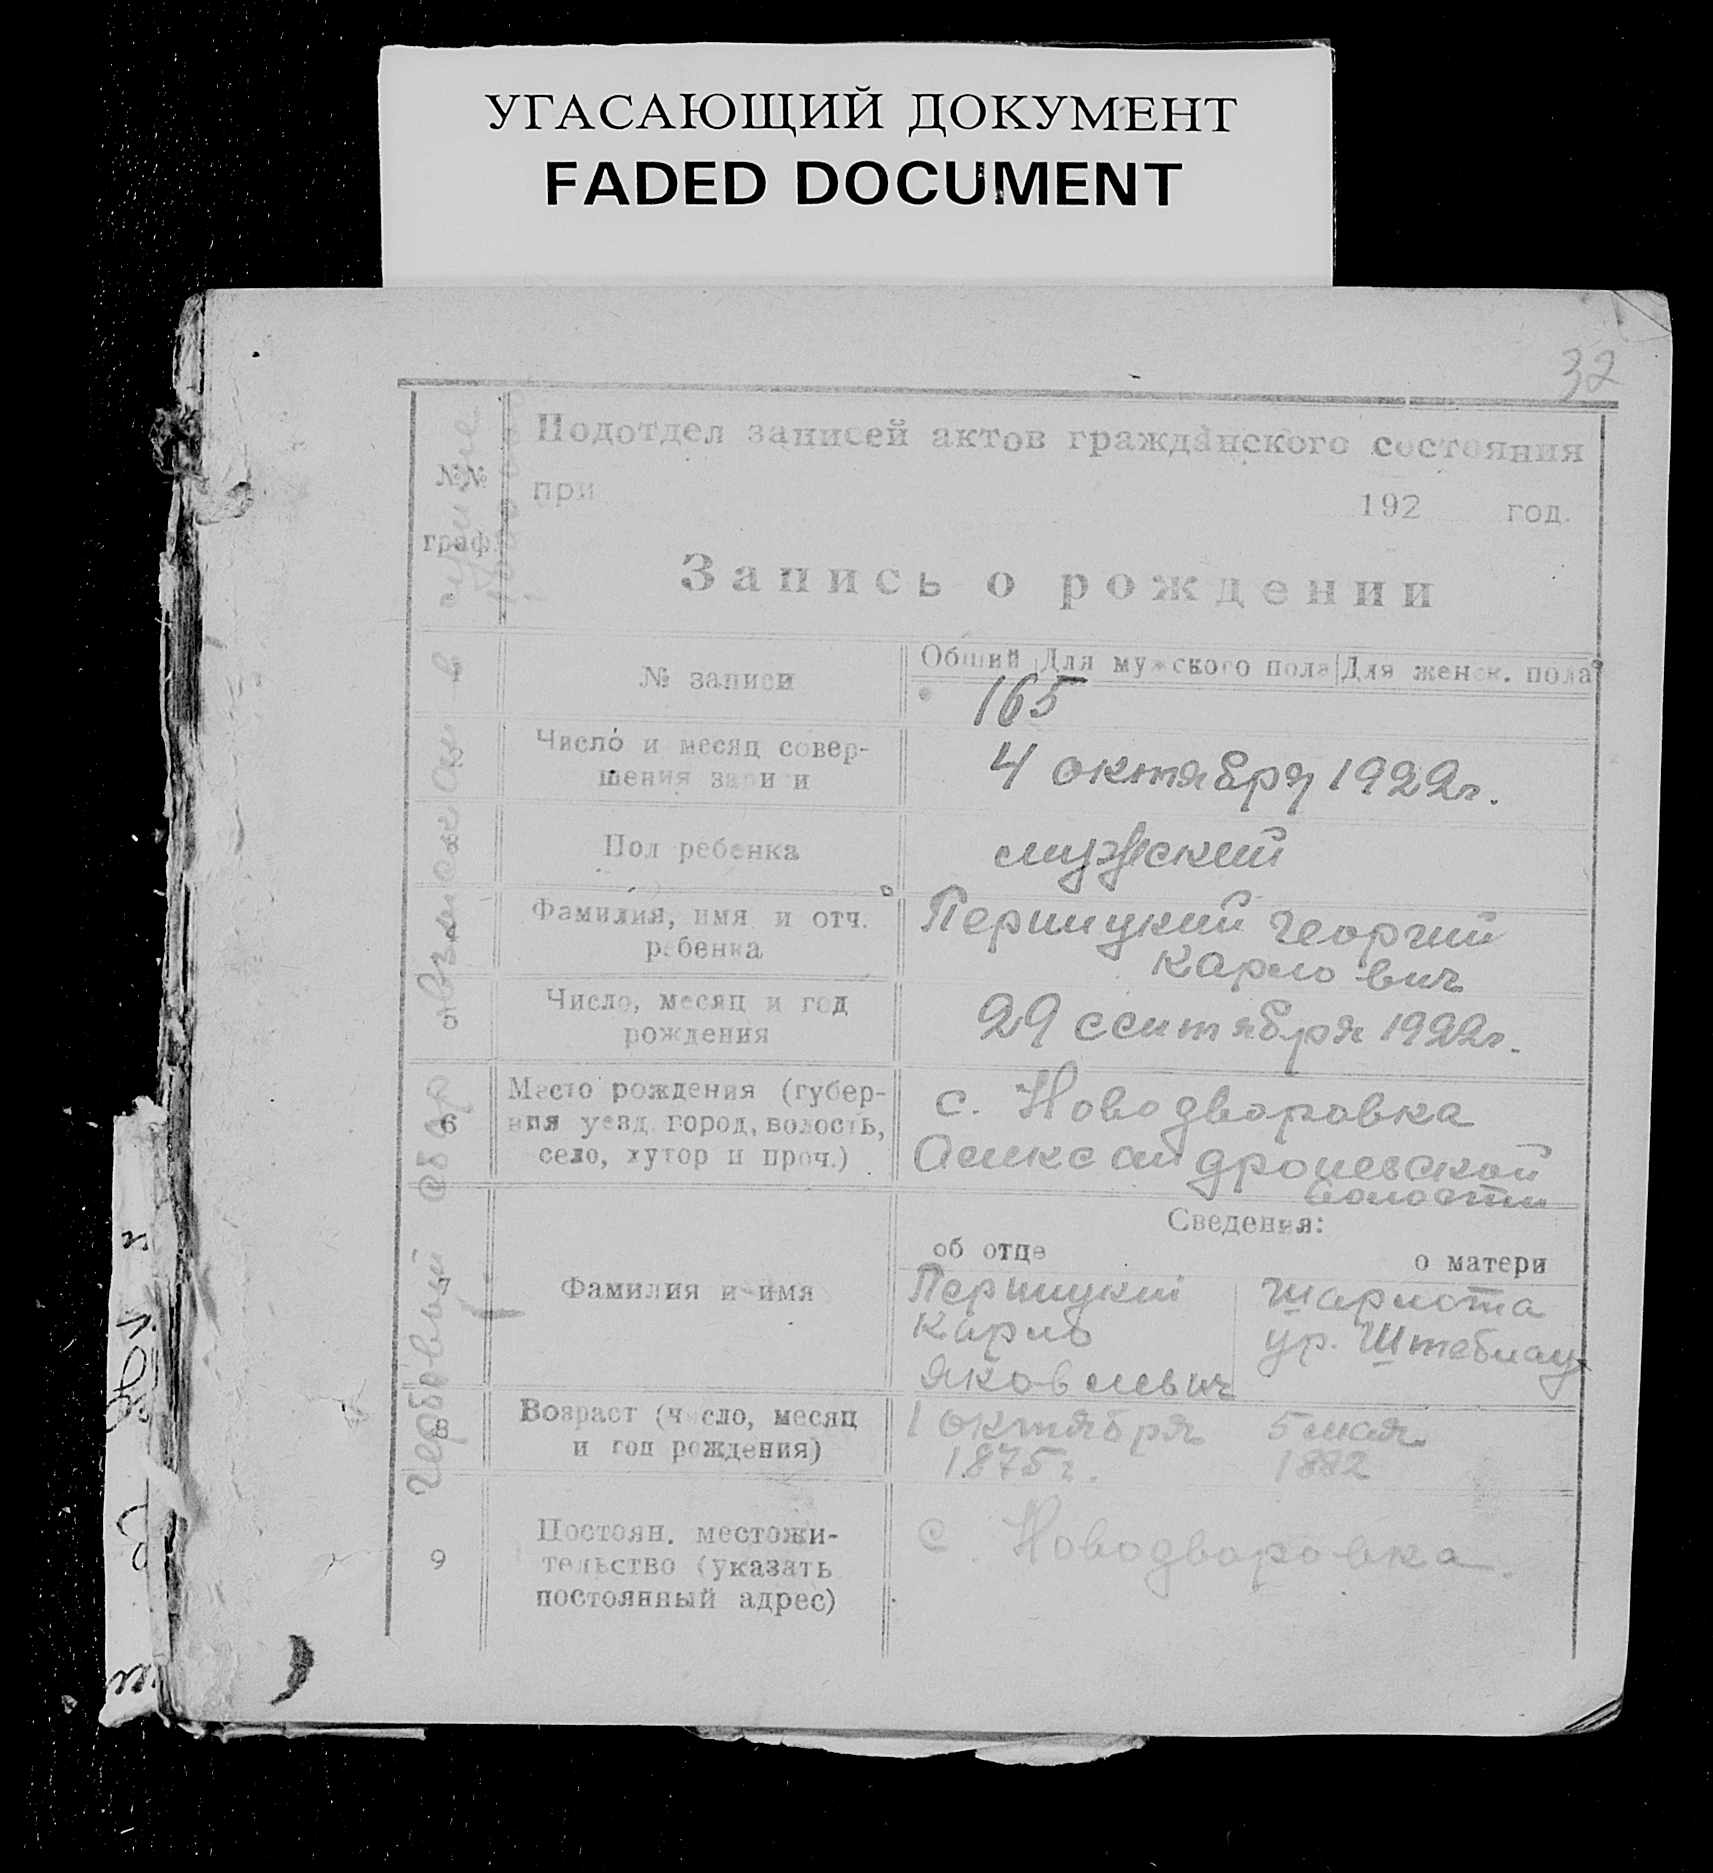 УГАСАЮЩИЙ ДОКУМЕНТ
FADED DOCUMENT
32
Подотдел записей актов гражданского состояния
№№
граф.
при 192 год.
Запись о рождении
№ записи
Общий Для мужского пола Для женск. пола
165
Число и месяц совер-
шения записи
4 октября 1922г.
Пол ребенка
мужский
Фамилия, имя и отч.
ребенка
Першицкий Георгий
Карлович
5
Число, месяц и год
рождения
29 сентября 1922г.
6
Место рождения (губер-
ния уезд, город, волость,
село, хутор и проч.)
с. Новодворовка
волости
Сведения:
об отце
о матери
7
Фамилия и имя
Першицкий
Карло
Яковлевич
Шарлота
ур. Штеблау
8
Возраст (число, месяц
и год рождения)
1 октября
1875г.
5 мая
1882
9
Постоян. местожи-
тельство (указать
постоянный адрес)
с. Новодворовка
Гербовый сбор взыскан в